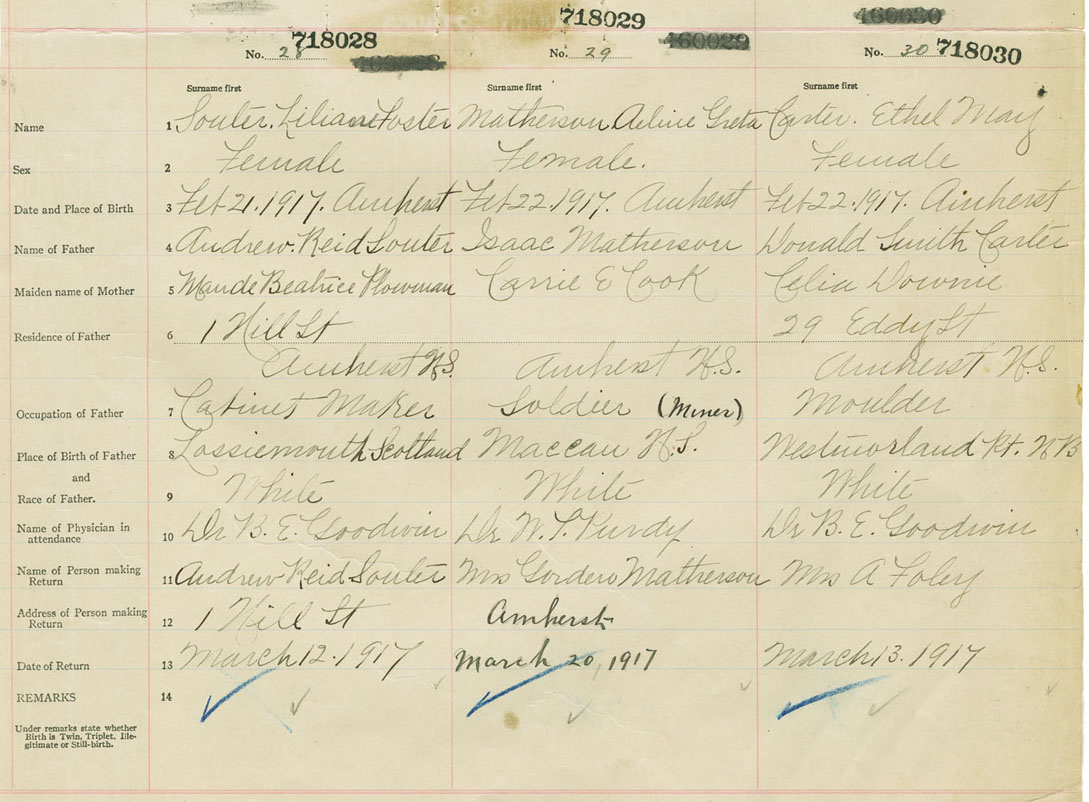 718028 718029
No. 28 No. 29 No. 30 718030
Surname first Surname first Surname first
Name 1 Souter. Liliane Foster Matherson Aeline Greta Carter. Ethel May
Sex 2 Female Female. Female
Date and Place of Birth 3 Feb 21. 1917. Amherst Feb 22. 1917. Amherst Feb 22. 1917. Amherst
Name of Father 4 Andrew. Reid Souter Isaac Matherson Donald Smith Carter
Maiden name of Mother 5 Maude Beatrice Plowman Carrie E Cook Celia Downie
Residence of Father 6 1 Hill St 29 Eddy St
Amherst N.S. Amherst N.S. Amherst N.S.
Occupation of Father 7 Cabinet Maker Soldier (Miner) Moulder
Place of Birth of Father 8 Lossiemouth Scotland Maccan N.S. Westmorland Pt. N B
and
Race of Father. 9 White White White
Name of Physician in
attendance 10 Dr B. E. Goodwin Dr W. T. Purdy Dr B. E. Goodwin
Name of Person making
Return 11 Andrew Reid Souter Mrs Gordon Matherson Mrs A Foley
Address of Person making
Return 12 1 Hill St Amherst
Date of Return 13 March 12. 1917 March 20, 1917 March 13. 1917
REMARKS 14
Under remarks state whether
Birth is Twin, Triplet, Ille-
gitimate or Still-birth.